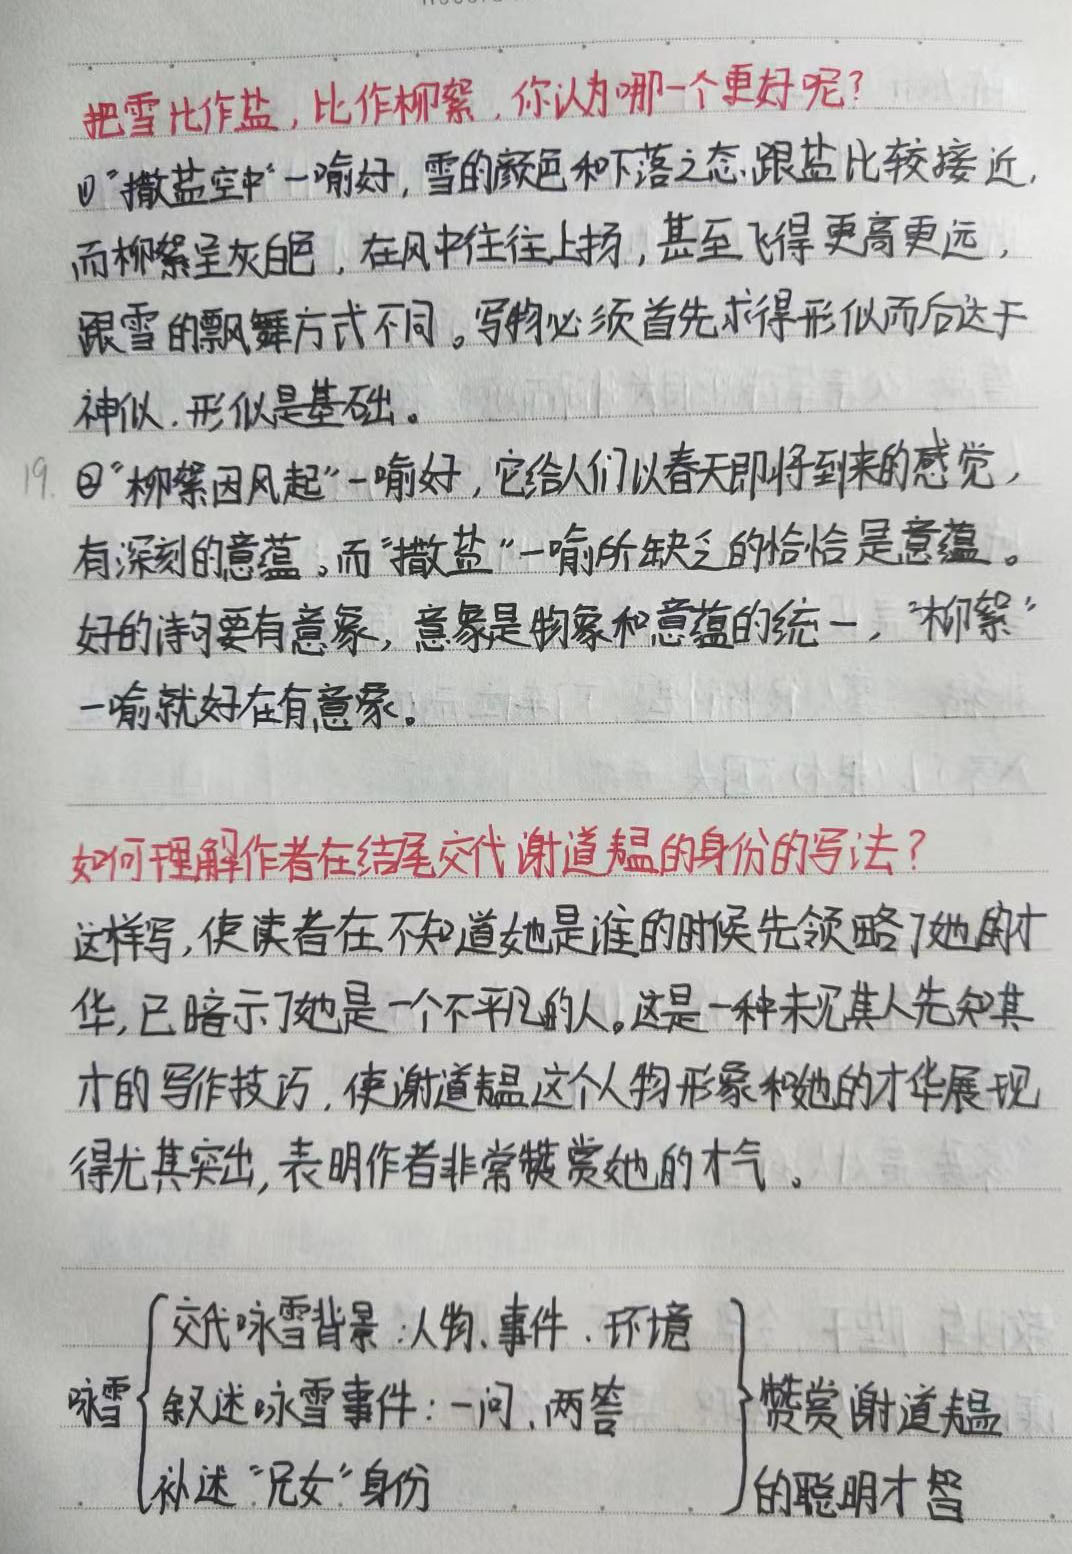 把雪比作盐,比作柳絮,你认为哪一个更好呢?
①“撒盐空中”一喻好,雪的颜色和下落之态,跟盐比较接近,
而柳絮呈灰白色,在风中往往上扬,甚至飞得更高更远,
跟雪的飘舞方式不同。写物必须首先求得形似而后达于
神似.形似是基础。
19. ②“柳絮因风起”一喻好,它给人们以春天即将到来的感觉,
有深刻的意蕴。而“撒盐”一喻所缺乏的恰恰是意蕴。
好的诗句要有意象,意象是物象和意蕴的统一,“柳絮”
一喻就好在有意象。
如何理解作者在结尾交代谢道韫的身份的写法?
这样写,使读者在不知道她是谁的时候先领略了她的才
华,已暗示了她是一个不平凡的人。这是一种未见其人先知其
才的写作技巧,使谢道韫这个人物形象和她的才华展现
得尤其突出,表明作者非常赞赏她的才气。
交代咏雪背景:人物、事件、环境
咏雪 叙述咏雪事件:一问,两答 赞赏谢道韫
补述“兄女”身份 的聪明才智